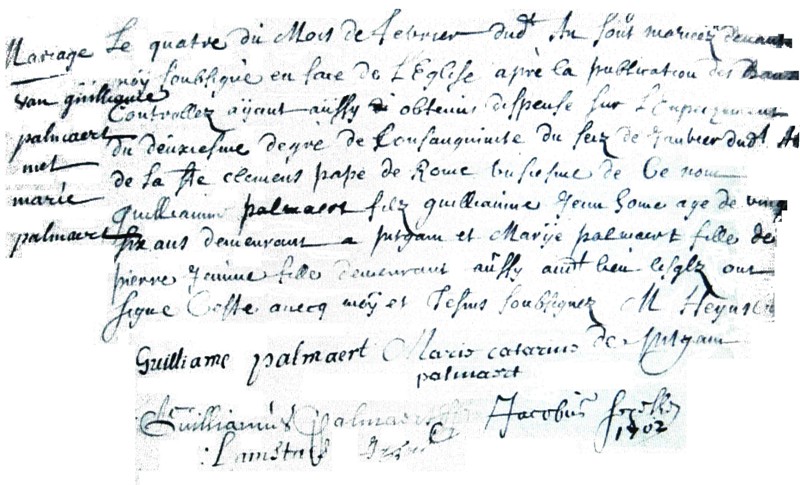 Mariage
van guilliaume
palmaert
met
marie
palmaert
Le quatre du Mois de febvrier dud.t An sont mariéz devant
moy soubsigné en face de L'Eglise aprè la publication des Bans
Controllez ayant aussy obtenu dispense sur L'Empeschement
du deuxiesme degre de Consanquinite du seiz de Janvier dud.t An
de la Ste clemens pape de Rome unsiesme de Ce nom
guilliaume palmaert filz guilliaume Jenn home age de vingt
six ans demeurant a pitgam et Marije palmaert fille de
pierre Jeunne fille demeurant aussy aud.t lieu lesqlz ont
signe Ceste avecq moy et Tesms soubsignez
Guilliame palmaert Marie catarine de pitgam
palmaert
Guilliamus palmaert Jacobus
1702